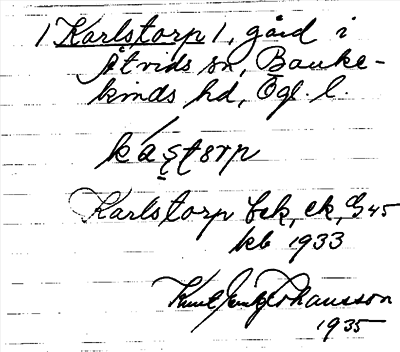 1 Karlstorp 1, gård i
Åtvids sn, Banke-
kinds hd, Ögl. l.
kástorp
Karlstorp bek, ek, G45
kb 1933
Knut Johansson
1935